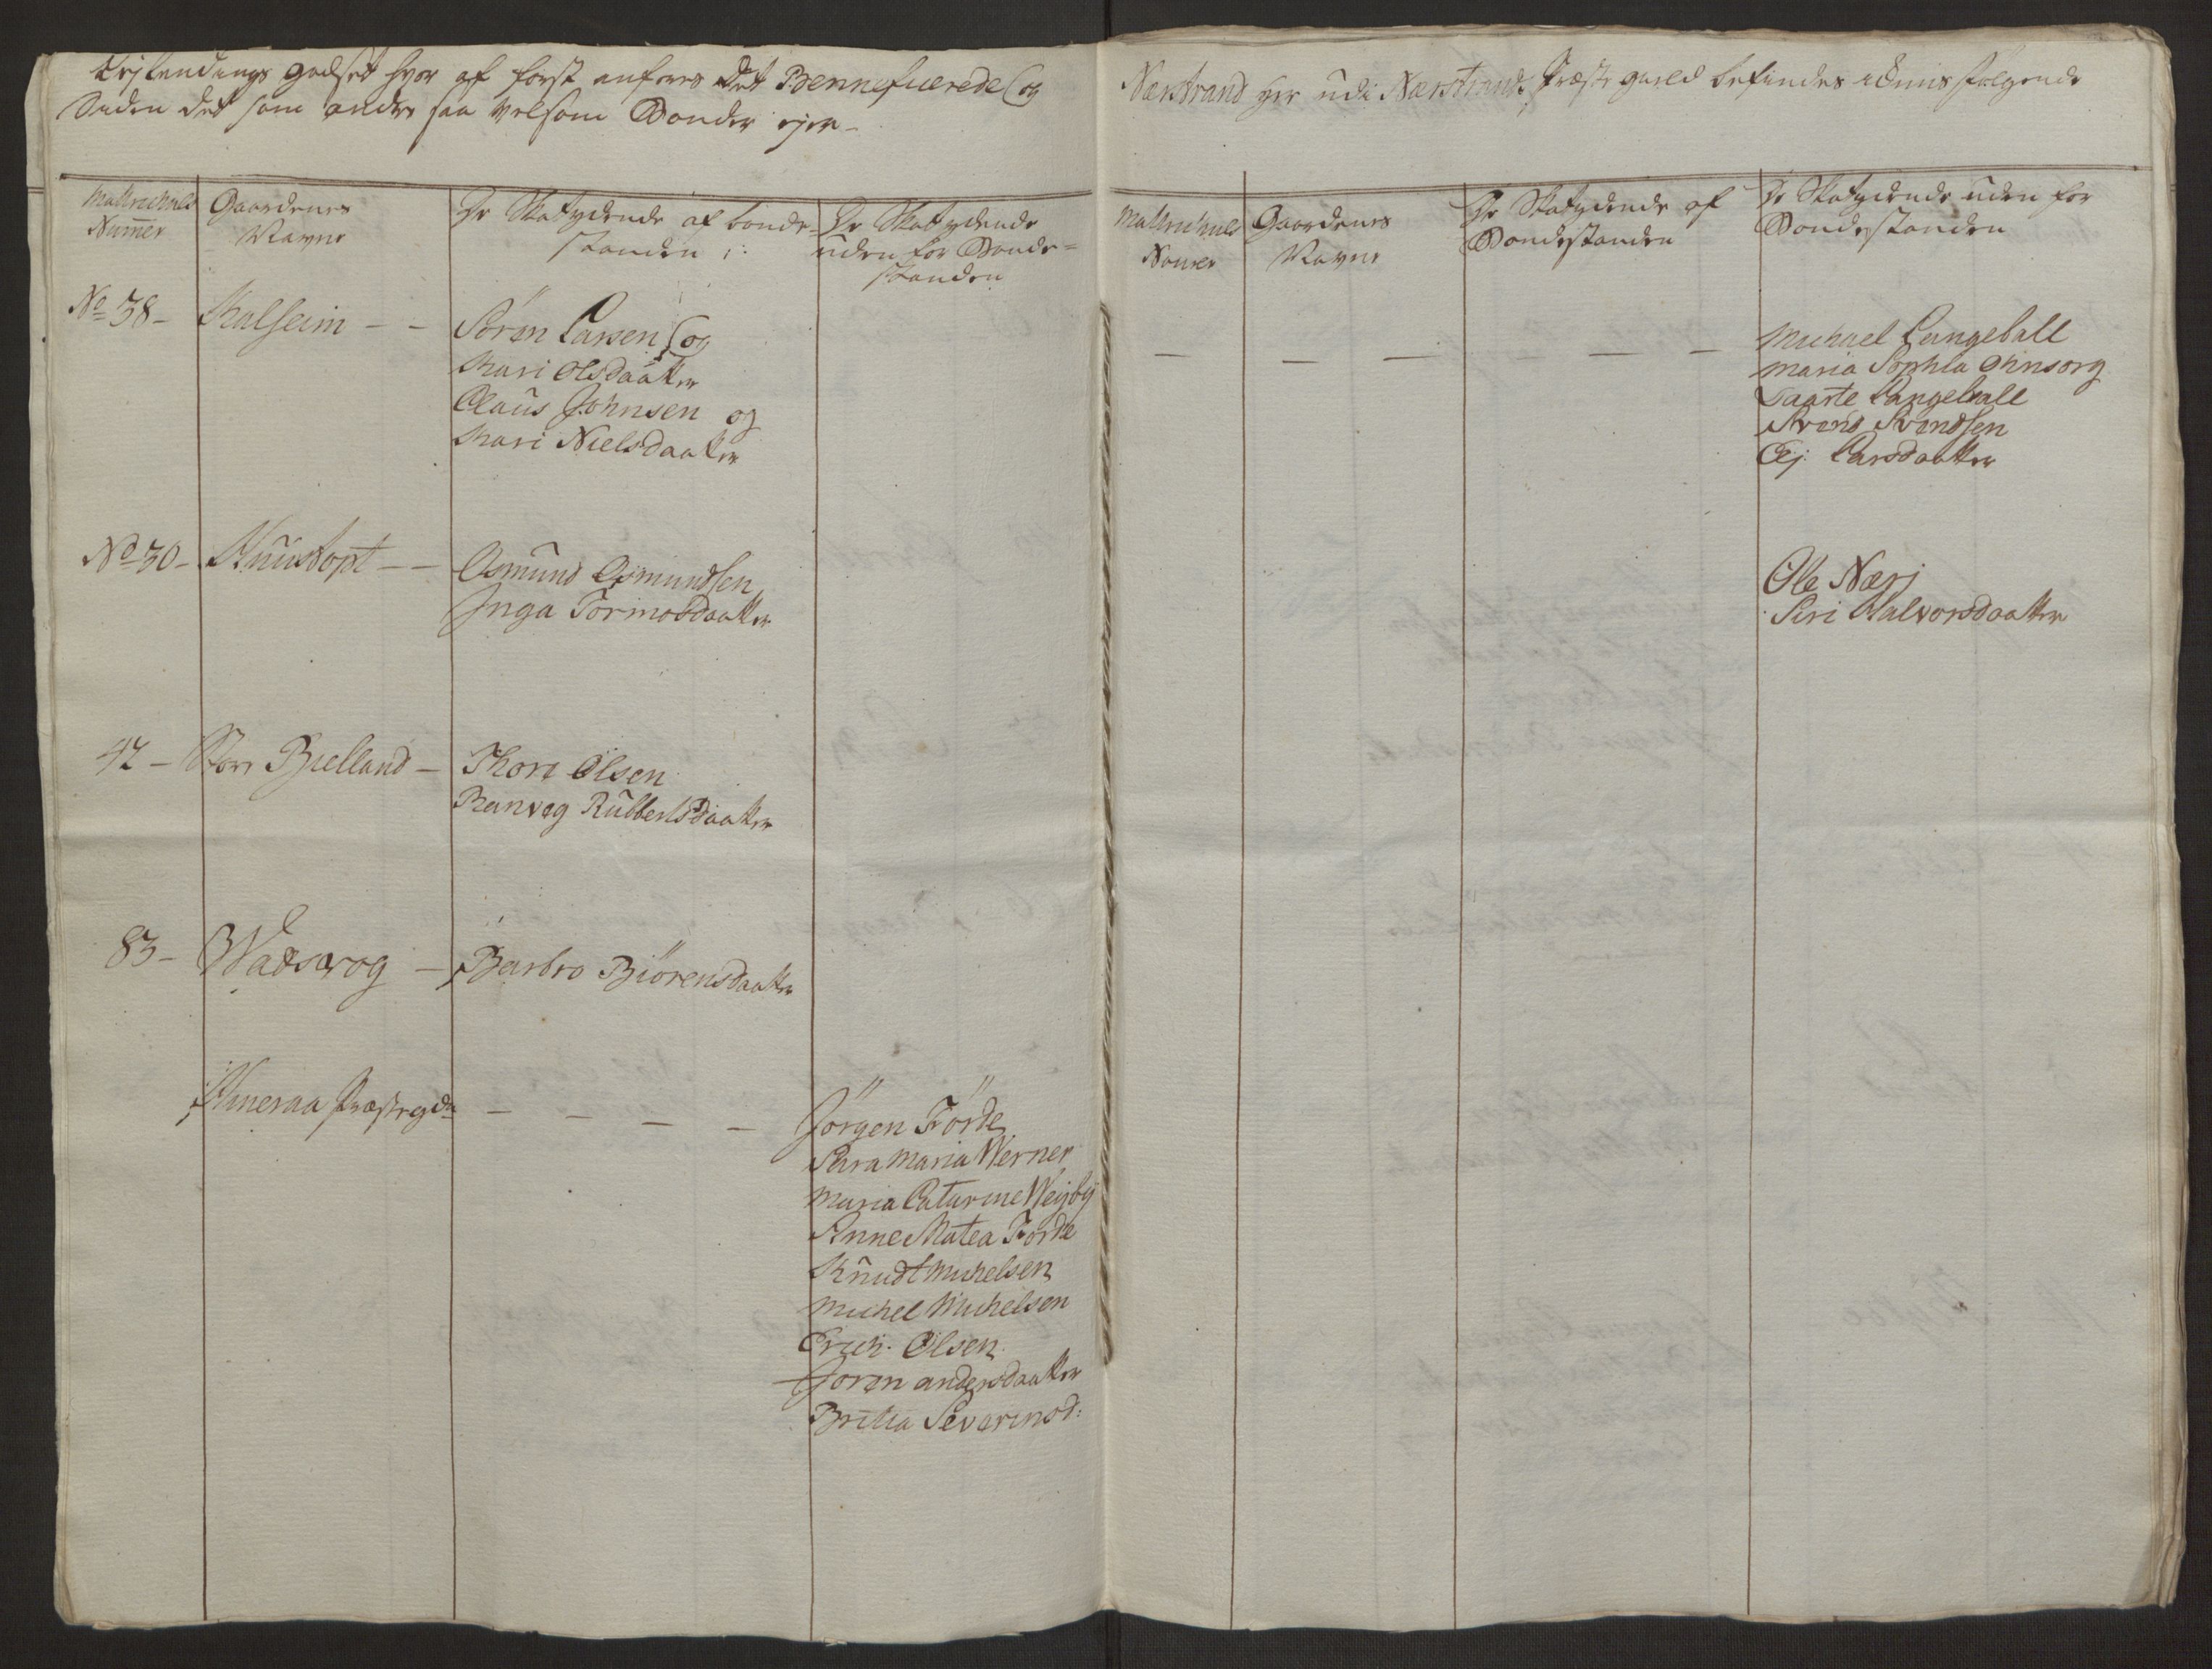 Leilendings godset hvor af först anföres det Beneficerede og
siden det som andre saa velsom Bönder ejer
Matrichuls Nummer
Gaardenes Navne
De Skatydende af bonde-
standen
De Skatydende
uden for Bonde=
standen
No 38 -
Sören Larsen og
Kari Olsdaatter
Claus Johnsen og
Kari Nielsdaatter
No 30 -
Osmund Osmundsen
Inga Tormodsdaatter
42 - Store Bielland -
Thore Olsen
Ranveg Rubbertsdaatter
83 - Wadsvog -
Barbro Biörensdaatter
Jörgen Förde
Sara Maria Werner
Maria Catarine Weyby
Anne Matea Förde
Knudt Michelsen
Michel Michelsen
Erich Olsen
Joren andersdaatter
Britha Severinsd:
Nærstrand her udi Nærstrands Præste gield befindes følgende
Matrichuls
Gaardenes Navne
De Skatydende af
Bondestanden
De Skatydende uden for
Bondestanden
Michael Langeball
Maria Sophia
Langeball
Svend Svendsen
Larsdaatter
Ole
Siri Halvorsdaatter